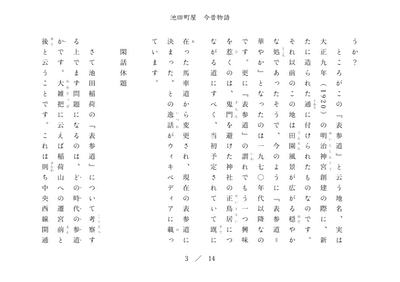 池田町屋　今昔物語
うか？
　ところがこの『表参道』と云う地名、実は
大正九年（1920）の明治神宮創建の際に、新
たに造られた通に付けられたものなのです。
それ以前のこの地は田園風景が広がる穏やか
な処であったそうで、今のように『表参道＝
華やか』となったのは一九七〇年代以降なの
です。更に『表参道』の謂れでもう一つ興味
を惹くのは、鬼門を避けた神社の正鳥居につ
ながる道にすべく、当初予定されていて既に
在った馬車道から変更され、現在の表参道に
決まった、との逸話がウィキペディアに載っ
ています。
閑話休題
　さて池田稲荷の『表参道』について考察す
る上でまず問題になるのは、どの時代の参道
かです。大雑把に云えば稲荷山への遷宮前と
後と云うことです。これは則ち中央西線開通
3 ／ 14